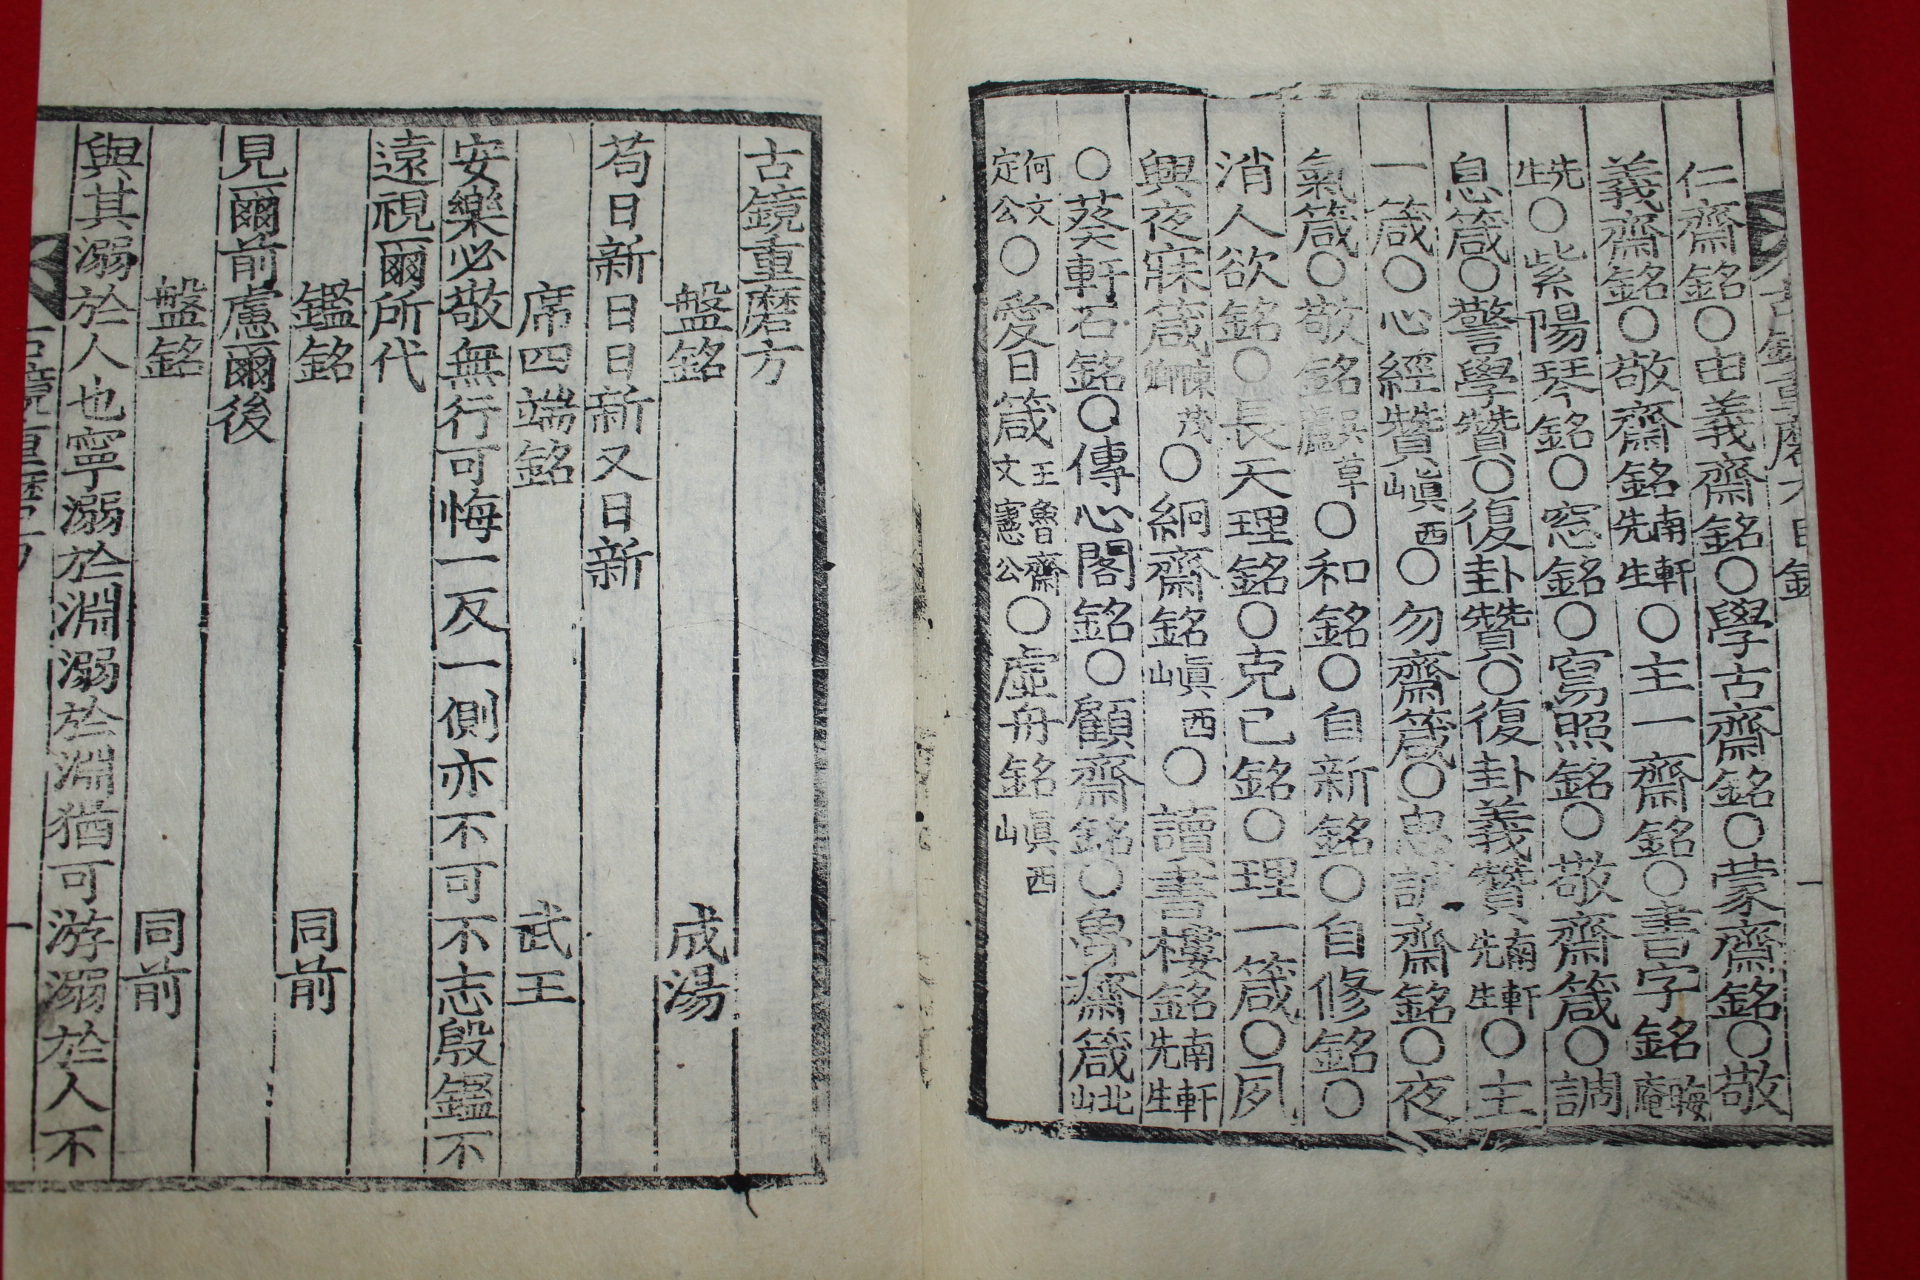 古鏡重磨方目錄 一
仁齋銘○由義齋銘○學古齋銘○蒙齋銘○敬
義齋銘○敬齋銘南軒先生○主一齋銘○書字銘晦庵
先生○紫陽琴銘○窓銘○寫照銘○敬齋箴○調
息箴○警學贊○復卦贊○復卦義贊南軒先生○主
一箴○心經贊眞西山○勿齋箴○思誠齋銘○夜
氣箴○敬銘吳草廬○和銘○自新銘○自修銘○
消人欲銘○長天理銘○克己銘○理一箴○夙
興夜寐箴陳茂卿○絅齋銘眞西山○讀書樓銘南軒先生
○葵軒石銘○傳心閣銘○顧齋銘○魯齋箴北山
何文定公○愛日箴王魯齋文憲公○虛舟銘眞西山
古鏡重磨方
盤銘 成湯
苟日新日日新又日新
席四端銘 武王
安樂必敬無行可悔一反一側亦不可不志殷鑑不
遠視爾所代
鑑銘 同前
見爾前慮爾後
盤銘 同前
與其溺於人也寧溺於淵溺於淵猶可游溺於人不
古鏡重磨方 一